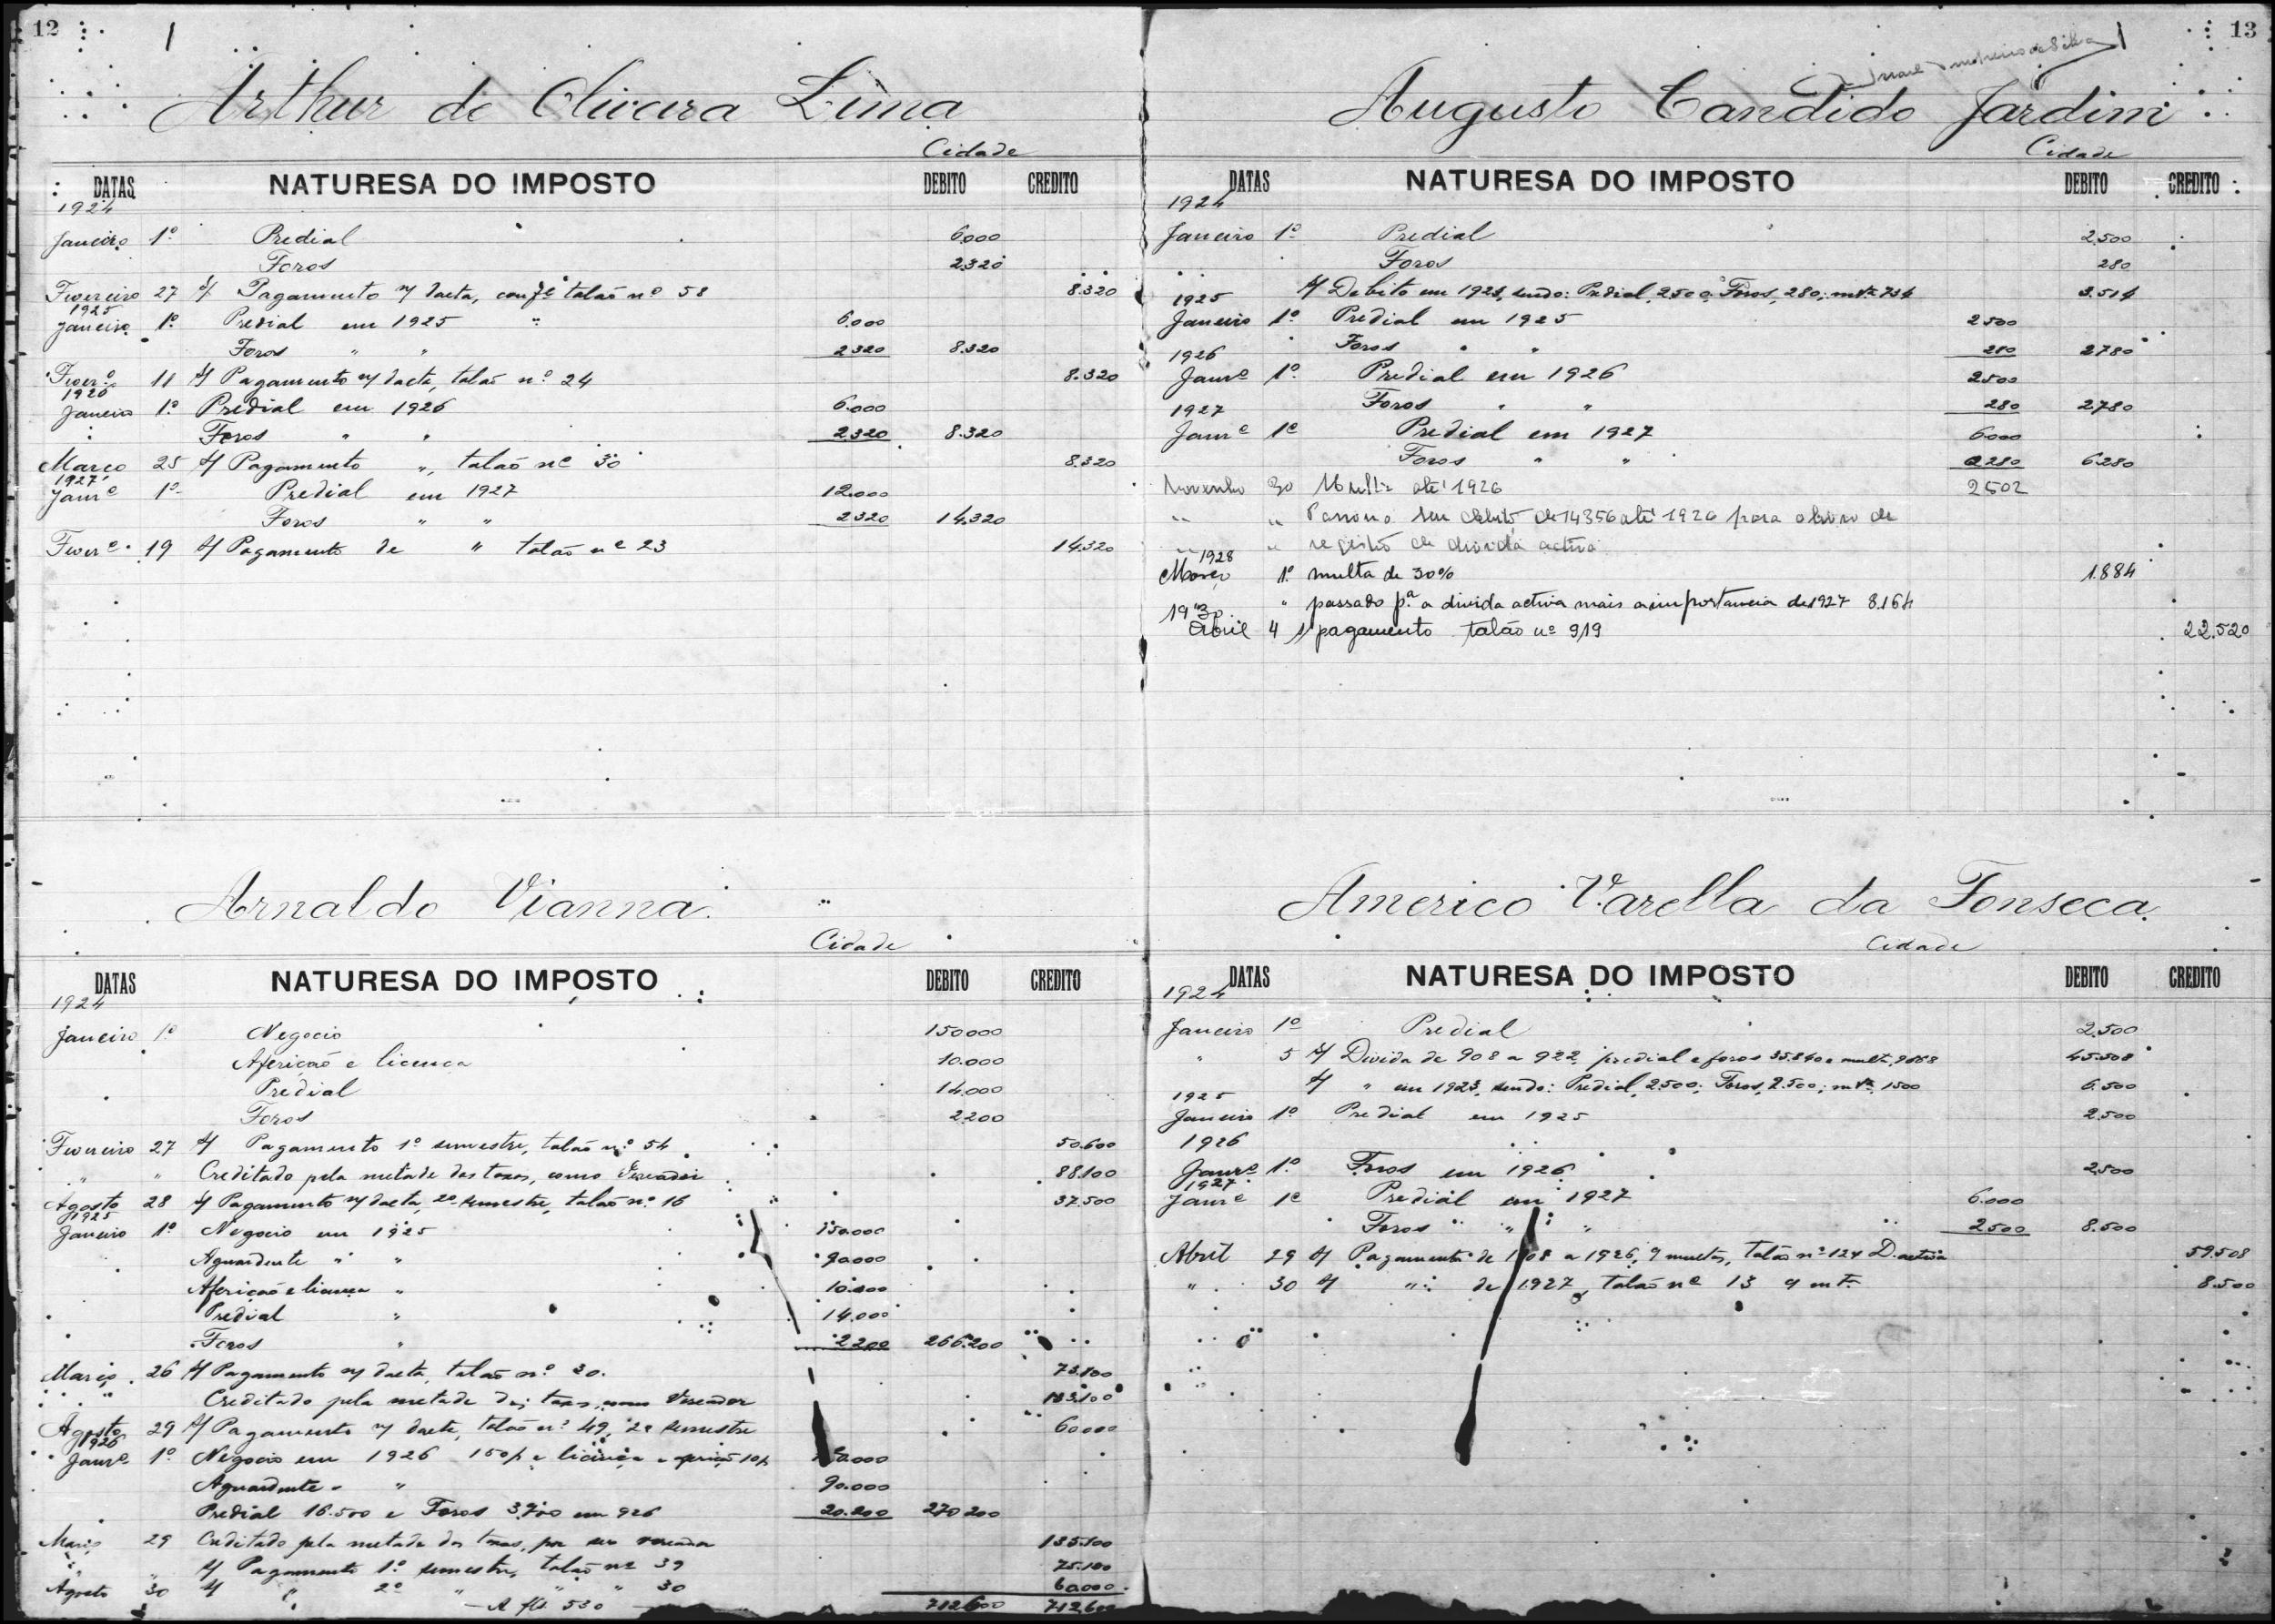 12
Arthur de Oliveira Lima
Cidade
DATAS NATURESA DO IMPOSTO DEBITO CREDITO
1924
Janeiro 1º Predial 6.000
Foros 2.320
Fevereiro 27 Pagamento n/ dacta, confe talão nº 58 8.320
1925
Janeiro 1º Predial em 1925 6.000
Foros " " 2320 8.320
Fever.º 11 Pagamento n/ dacta, talão nº 24 8.320
1926
Janeiro 1º Predial em 1926 6.000
Foros " " 2.320 8.320
Março 25 Pagamento ", talão nº 30 8.320
1927
Janrº 1º Predial em 1927 12.000
Foros " " 2320 14.320
Feverº 19 Pagamento de " talão nº 23 14.320
13
Augusto Candido Jardim
Cidade
DATAS NATURESA DO IMPOSTO DEBITO CREDITO
1924
Janeiro 1º Predial 2.500
Foros 280
Debito em 1923, sendo: Predial, 2500; Foros, 280; mta 734 3.514
1925
Janeiro 1º Predial em 1925 2500
Foros " " 280 2780
1926
Janrº 1º Predial em 1926 2500
Foros " " 280 2780
1927
Janrº 1º Predial em 1927 6000
Foros " " 280 6.280
Novembro 30 Multa até 1926 2502
" " seu debito de 14356 até 1926 para o livro de
" " registro de divida activa
1928
Março 1º multa de 30% 1.884
" passado p.ª a divida activa mais a importancia de 1927 8.164
1930
Abril 4 pagamento talão nº 919 22.520
Arnaldo Vianna
Cidade
DATAS NATURESA DO IMPOSTO DEBITO CREDITO
1924
Janeiro 1º Negocio 150000
Afericão e licença 10.000
Predial 14.000
Foros 2200
Fevereiro 27 Pagamento 1º semestre, talão nº 54 50.600
" " Creditado pela metade das taxas, como Vereador 88.100
Agosto 28 Pagamento n/ dacta, 2º semestre, talão nº 16 37.500
1925
Janeiro 1º Negocio em 1925 150.000
Aguardente " " 90.000
Afericão e licença " 10.000
Predial " 14.000
Foros " 2200 266.200
Março 26 Pagamento n/ dacta, talão nº 30. 73.100
" " Creditado pela metade das taxas, como Vereador 133.100
Agosto 29 Pagamento n/ dacta, talão nº 49, 2º semestre 60000
1926
Janrº 1º Negocio em 1926 150
Aguardente " " 90.000
Predial 16.500 e Foros 3.700 em 926 20.200 270200
Março 29 Creditado pela metade das taxas, por ser vereador 135.100
" " Pagamento 1º semestre, talão nº 39 75.100
Agosto 30 " 2º " " " 30 60.000
A fls. 530 712600 712.600
Americo Varella da Fonseca
Cidade
DATAS NATURESA DO IMPOSTO DEBITO CREDITO
1924
Janeiro 1º Predial 2.500
" 5 Divida de 908 a 922, predial e foros 35.840 e multa 9.668 45.508
" em 1923, sendo: Predial, 2.500; Foros, 2.500; mta 1500 6.500
1925
Janeiro 1º Predial em 1925 2.500
1926
Janrº 1º Foros em 1926 2.500
1927
Janrº 1º Predial em 1927 6.000
Foros " " " 2500 8.500
Abril 29 Pagamento de 1908 a 1926, talão nº 124 D. activa 59.508
" 30 " de 1927, talão nº 13 8.500